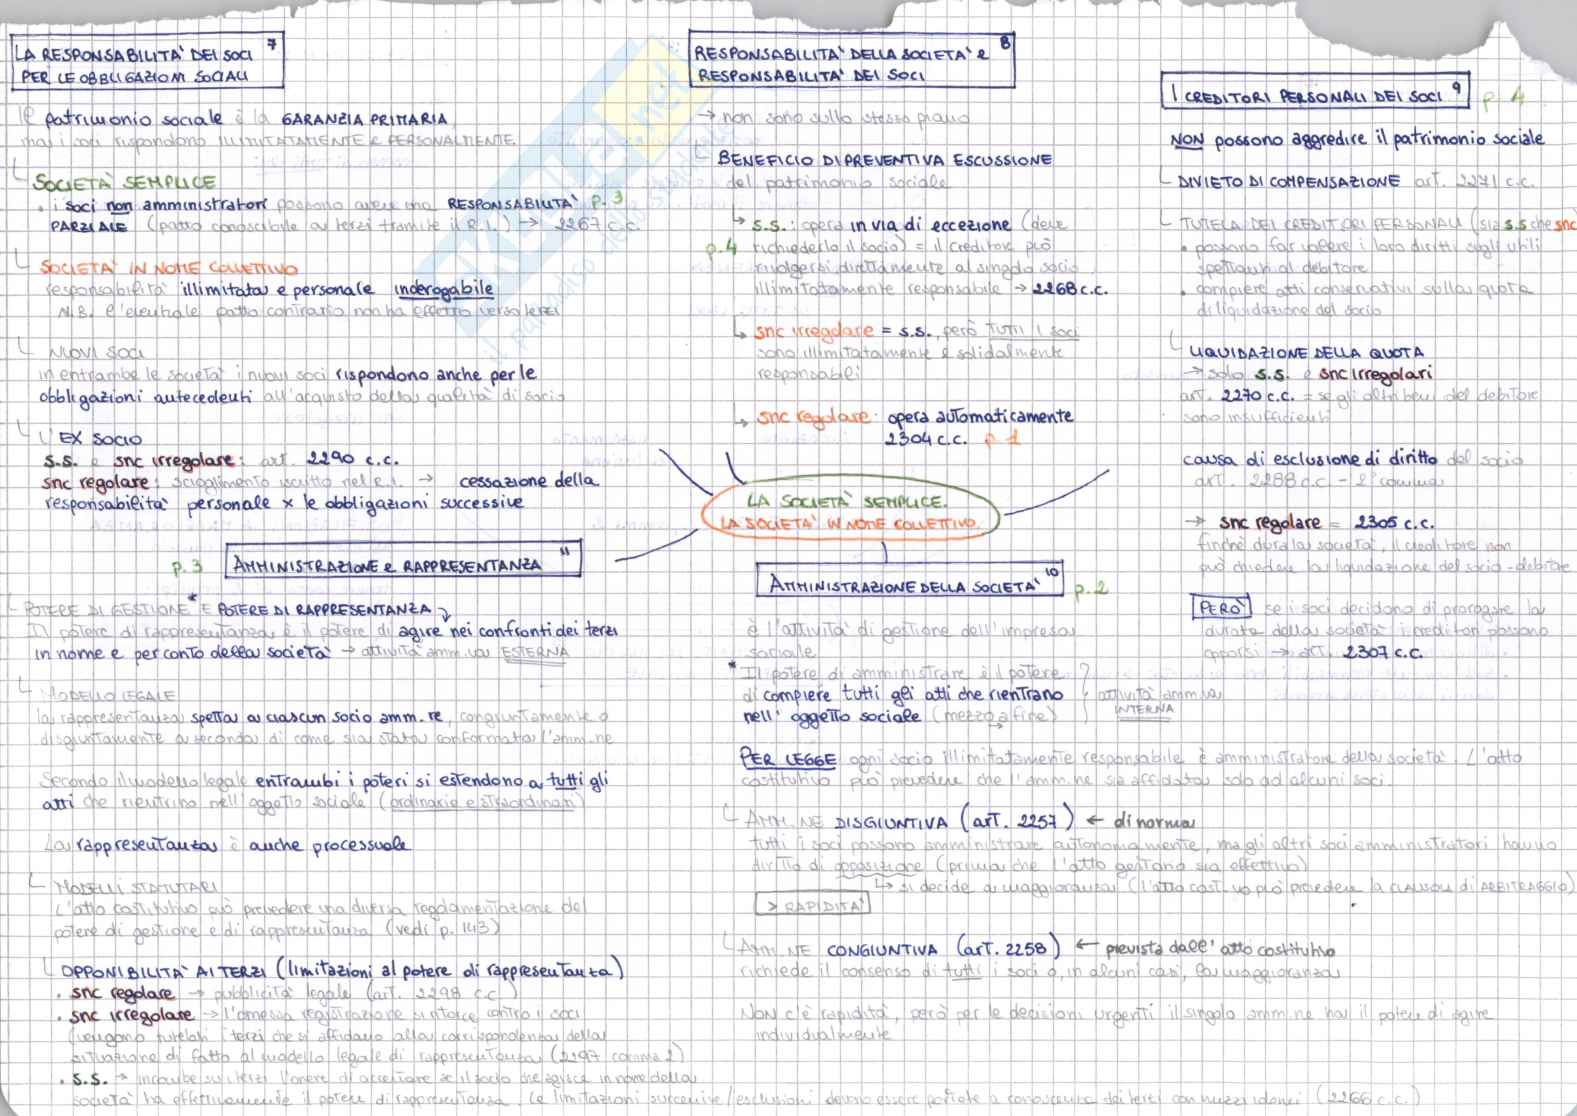 LA RESPONSABILITA' DEI SOCI 7
PER LE OBBLIGAZIONI SOCIALI
Il patrimonio sociale è la GARANZIA PRIMARIA,
ma i soci rispondono ILLIMITATAMENTE e PERSONALMENTE.
SOCIETA' SEMPLICE
• i soci non amministratori possono avere una RESPONSABILITA' p. 3
PARZIALE (patto conoscibile ai terzi tramite il R.I.) → 2267 c.c.
SOCIETA' IN NOME COLLETTIVO
responsabilità illimitata e personale inderogabile
N.B. e l'eventuale patto contrario non ha effetto verso terzi
NUOVI SOCI
in entrambe le società i nuovi soci rispondono anche per le
obbligazioni antecedenti all'acquisto della qualità di socio
L'EX SOCIO
s.s. e snc irregolare: art. 2290 c.c.
snc regolare: scioglimento iscritto nel r.i. → cessazione della
responsabilità personale x le obbligazioni successive
RESPONSABILITA' DELLA SOCIETA' e 8
RESPONSABILITA' DEI SOCI
→ non sono sullo stesso piano
BENEFICIO DI PREVENTIVA ESCUSSIONE
del patrimonio sociale
↳ s.s.: opera in via di eccezione (deve
p.4 richiederlo il socio) = il creditore può
rivolgersi direttamente al singolo socio
illimitatamente responsabile → 2268 c.c.
↳ snc irregolare = s.s., però TUTTI i soci
sono illimitatamente e solidalmente
responsabili
↳ snc regolare: opera automaticamente
2304 c.c. p. 1
I CREDITORI PERSONALI DEI SOCI 9 p. 4
NON possono aggredire il patrimonio sociale
DIVIETO DI COMPENSAZIONE art. 2271 c.c.
TUTELA DEI CREDITORI PERSONALI (sia s.s che snc
• possono far valere i loro diritti sugli utili
spettanti al debitore
• compiere atti conservativi sulla quota
di liquidazione del socio
LIQUIDAZIONE DELLA QUOTA
→ solo s.s. e snc irregolari
art. 2270 c.c. = se gli altri beni del debitore
sono insufficienti
causa di esclusione di diritto del socio
art. 2288 c.c. - 2° comma
→ snc regolare = 2305 c.c.
finché dura la società, il creditore non
può chiedere la liquidazione del socio-debitore
PERO' se i soci decidono di prorogare la
durata della società i creditori possono
opporsi → art. 2307 c.c.
LA SOCIETA' SEMPLICE.
LA SOCIETA' IN NOME COLLETTIVO.
p. 3 AMMINISTRAZIONE e RAPPRESENTANZA 11
POTERE DI GESTIONE* E POTERE DI RAPPRESENTANZA
Il potere di rappresentanza è il potere di agire nei confronti dei terzi
in nome e per conto della società → attività amm.va ESTERNA
MODELLO LEGALE
la rappresentanza spetta a ciascun socio amm.re, congiuntamente o
disgiuntamente a seconda di come sia stata conformata l'amm.ne
Secondo il modello legale entrambi i poteri si estendono a tutti gli
atti che rientrano nell'oggetto sociale (ordinari e straordinari)
La rappresentanza è anche processuale
MODELLI STATUTARI
L'atto costitutivo può prevedere una diversa regolamentazione del
potere di gestione e di rappresentanza (vedi p. 143)
OPPONIBILITA' AI TERZI (limitazioni al potere di rappresentanza)
• snc regolare → pubblicità legale (art. 2298 c.c.)
• snc irregolare → l'omessa registrazione si ritorce contro i soci
(vengono tutelati i terzi che si affidano alla corrispondenza della
situazione di fatto al modello legale di rappresentanza (2297 comma 2)
• s.s. → incombe sui terzi l'onere di accertare se il socio che agisce in nome della
società ha effettivamente il potere di rappresentanza. Le limitazioni successive/esclusioni devono essere portate a conoscenza dei terzi con mezzi idonei (2266 c.c.)
AMMINISTRAZIONE DELLA SOCIETA' 10 p. 2
è l'attività di gestione dell'impresa
sociale
* Il potere di amministrare è il potere
di compiere tutti gli atti che rientrano
nell'oggetto sociale (mezzo a fine)
attività amm.va
INTERNA
PER LEGGE ogni socio illimitatamente responsabile è amministratore della società. L'atto
costitutivo può prevedere che l'amm.ne sia affidata solo ad alcuni soci.
AMM.NE DISGIUNTIVA (art. 2257) ← di norma
tutti i soci possono amministrare autonomamente, ma gli altri soci amministratori hanno
diritto di opposizione (prima che l'atto gestorio sia effettivo)
↳ si decide a maggioranza (l'atto cost.vo può prevedere la CLAUSOLA di ARBITRAGGIO)
> RAPIDITA'
AMM.NE CONGIUNTIVA (art. 2258) ← prevista dall'atto costitutivo
richiede il consenso di tutti i soci o, in alcuni casi, la maggioranza
Non c'è rapidità, però per le decisioni urgenti il singolo amm.ne ha il potere di agire
individualmente